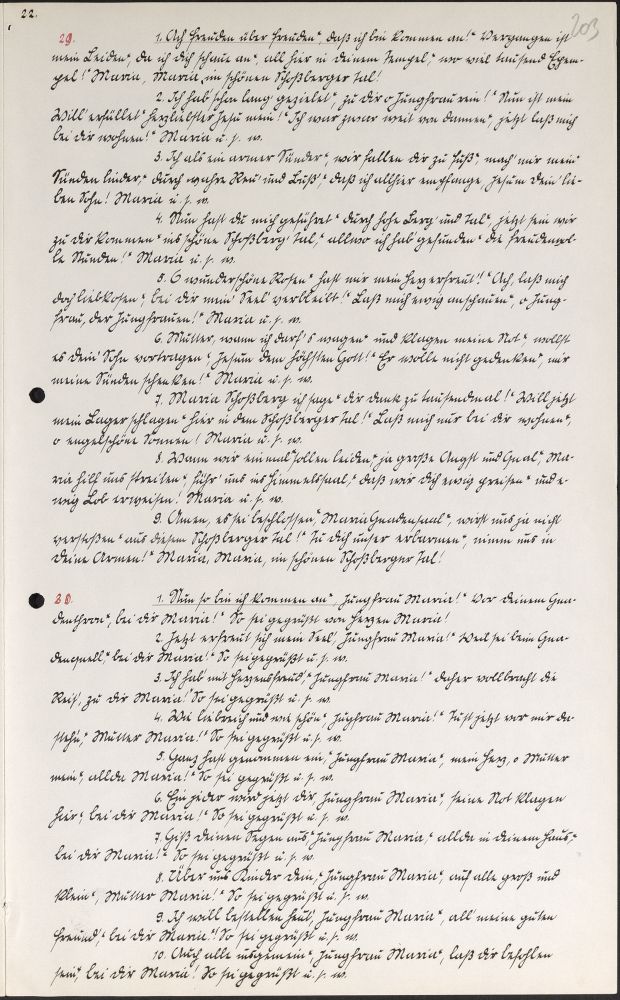 22.
203
29. 1. Ach Freuden über Freuden", daß ich bin kommen an!" Vergangen ist
mein Leiden", da ich dich schaue an", all hier in deinem Tempel," wo viel tausend Exem-
pel!" Maria, Maria im schönen Schoßberger Tal!
2. Ich hab' schon lang gezielet", zu dir o Jungfrau rein!" Nun ist mein
Will' erfüllet" herzliebster Jesu mein!" Ich war zwar weit von dannen", jetzt laß mich
bei dir wohnen!" Maria u. s. w.
3. Ich als ein armer Sünder", wir fallen dir zu Füß", mach' mir mein'
Sünden linder," durch wahre Reu' und Buß'," daß ich allhier empfange, Jesum dein' lie-
ben Sohn! Maria u. s. w.
4. Nun hast du mich geführet" durch hohe Berg' und Tal", jetzt sein wir
zu dir kommen" ins schöne Schoßberg' Tal," allwo ich hab' gefunden" die freudenvol-
le Stunden!" Maria u. s. w.
5. O wunderschöne Rosen" hast mir mein Herz erfreut!" Ach, laß mich
doch liebkosen", bei dir mein' Seel' verbleibt!" Laß mich ewig anschauen", o Jung-
frau, der Jungfrauen!" Maria u. s. w.
6. Mutter, wann ich darf's wagen" und klagen meine Not", wollst
es dein' Sohn vortragen", Jesum dem höchsten Gott!" Er wolle nicht gedenken", mir
meine Sünden schenken!" Maria u. s. w.
7. Maria Schoßberg ich sage" dir dank zu tausendmal!" Will jetzt
mein Lager schlagen" hier in dem Schoßberger Tal!" Laß mich nur bei dir wohnen",
o engelschöne Sonnen! Maria u. s. w.
8. Wann wir einmal sollen leiden," ja große Angst und Qual", Ma-
ria hilf uns streiten", führ' uns ins Himmelssaal," daß wir dich ewig preisen" und e-
wig Lob erweisen! Maria u. s. w.
9. Amen, es sei beschlossen," Maria Gnadensaal", wirst uns ja nicht
verstoßen" aus diesem Schoßberger Tal!" Tu dich unser erbarmen", nimm uns in
deine Armen!" Maria, Maria, im schönen Schoßberger Tal!
30. 1. Nun so bin ich kommen an", Jungfrau Maria!" Vor deinem Gna-
denthron", bei dir Maria!" So sei gegrüßt von Herzen Maria!
2. Jetzt erfreut sich mein Seel', Jungfrau Maria!" Weil sei beim Gna-
denquell", bei dir Maria!" So sei gegrüßt u. s. w.
3. Ich hab' mit Herzensfreud'," Jungfrau Maria!" daher vollbracht die
Reis', zu dir Maria! So sei gegrüßt u. s. w.
4. Wie liebreich und wie schön" Jugfrau Maria!" Tust jetzt vor mir da-
stehn," Mutter Maria!" So sei gegrüßt u. s. w.
5. Ganz hast genommen ein," Jungfrau Maria", mein Herz, o Mutter
mein", allda Maria!" So sei gegrüßt u. s. w.
6. Ein jeder wird jetzt dir, Jungfrau Maria", seine Not klagen
hier", bei dir Maria!" So sei gegrüßt u. s. w.
7. Gieß deinen Segen aus," Jungfrau Maria," allda in deinem Haus,"
bei dir Maria!" So sei gegrüßt u. s. w.
8. Über uns Kinder dein," Jungfrau Maria", auf alle groß und
klein", Mutter Maria!" So sei gegrüßt u. s. w.
9. Ich will bestellen heut', Jungfrau Maria", all' meine guten
Freund'," bei dir Maria!" So sei gegrüßt u. s. w.
10. Auch alle insgemein", Jungfrau Maria", laß dir befohlen
sein", bei dir Maria! So sei gegrüßt u. s. w.